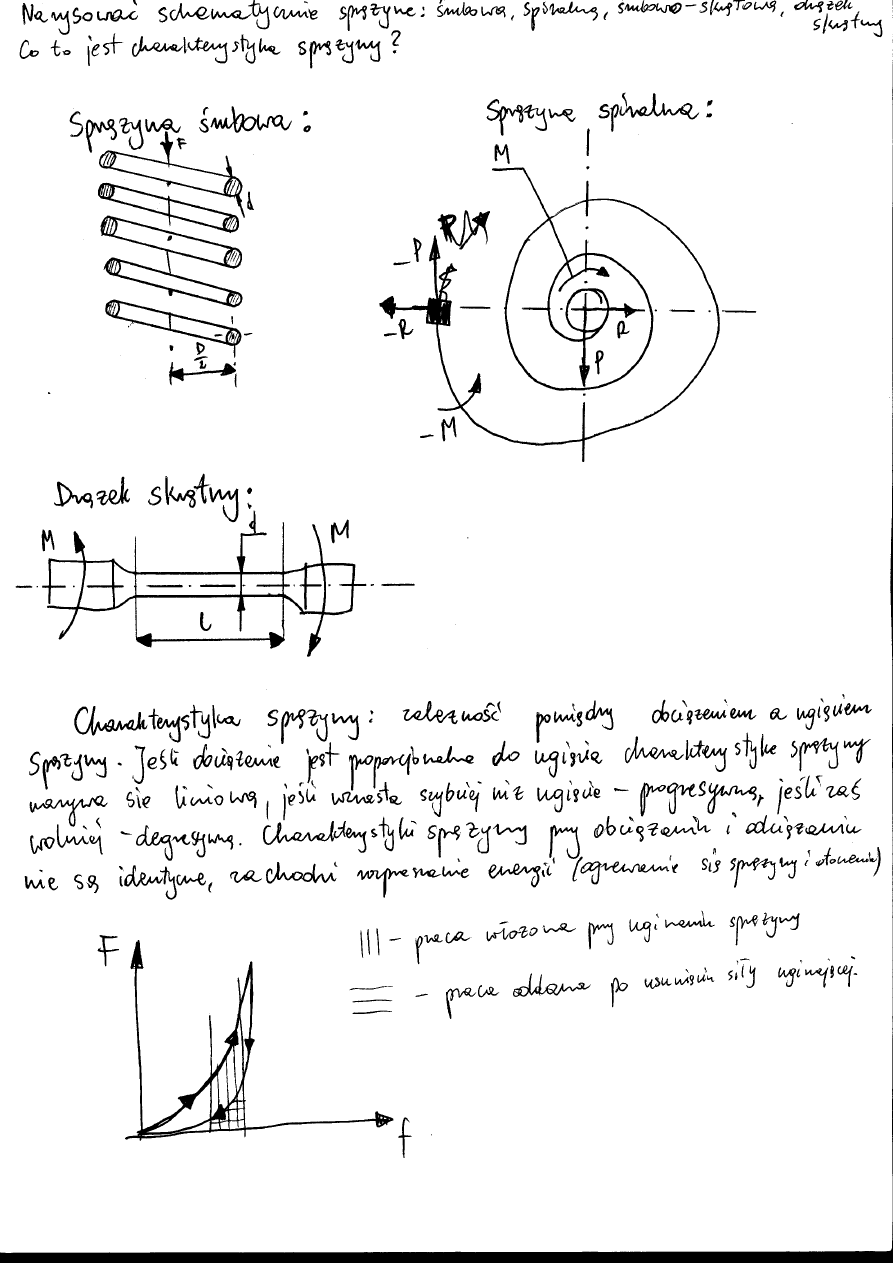 Narysować schematycznie sprężynę: śrubową, spiralną, śrubowo-skrętową, drążek
skrętny
Co to jest charakterystyka sprężyny?
Sprężyna śrubowa:
F
d
D/2
Sprężyna spiralna:
M
-P
-R
R
P
-M
Drążek skrętny:
M
d
M
l
Charakterystyka sprężyny: zależność pomiędzy obciążeniem a ugięciem
sprężyny. Jeśli obciążenie jest proporcjonalne do ugięcia charakterystykę sprężyny
nazywa się liniową, jeśli wzrasta szybciej niż ugięcie - progresywną, jeśli zaś
wolniej - degresywną. Charakterystyki sprężyny przy obciążaniu i odciążaniu
nie są identyczne, zachodzi rozpraszanie energii (ogrzewanie się sprężyny i otoczenia)
||| - praca włożona przy uginaniu sprężyny
- praca oddana po usunięciu siły uginającej.
F
f